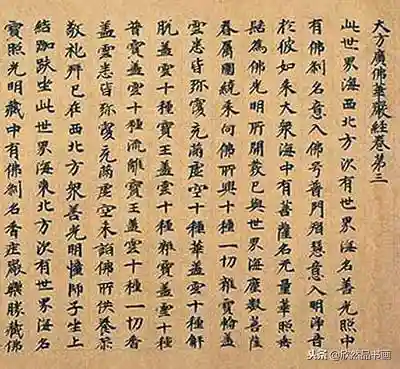 大方廣佛華嚴經卷第三
此世界海西北方次有世界海名善光照中
有佛剎名意入佛号普門慧意入明淨音
於彼如来大衆海中有菩薩名无量華照垂
髻為佛光明所開發已與世界海塵數菩薩
眷屬圍繞来向佛所興十種一切雜寶蓋
雲悉皆弥覆充滿虛空十種華蓋雲十種解
脫蓋雲十種寶王蓋雲十種雜寶蓋雲十種
普寶蓋雲十種流離寶王蓋雲十種一切香
蓋雲悉皆弥覆充滿虛空来詣佛所供養恭
敬礼拜已在西北方衆善光明幢師子坐上
結跏趺坐此世界海東北方次有世界海名
寶照光明藏中有佛剎名香莊嚴勝藏佛
头条 @欣然品书画